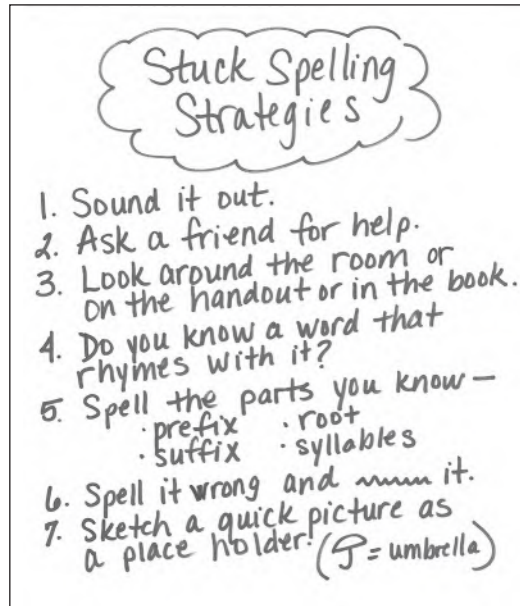 Stuck Spelling
Strategies
1. Sound it out.
2. Ask a friend for help.
3. Look around the room or
on the handout or in the book.
4. Do you know a word that
rhymes with it?
5. Spell the parts you know—
· prefix · root
· suffix · syllables
6. Spell it wrong and it.
7. Sketch a quick picture as
a place holder. ( = umbrella)